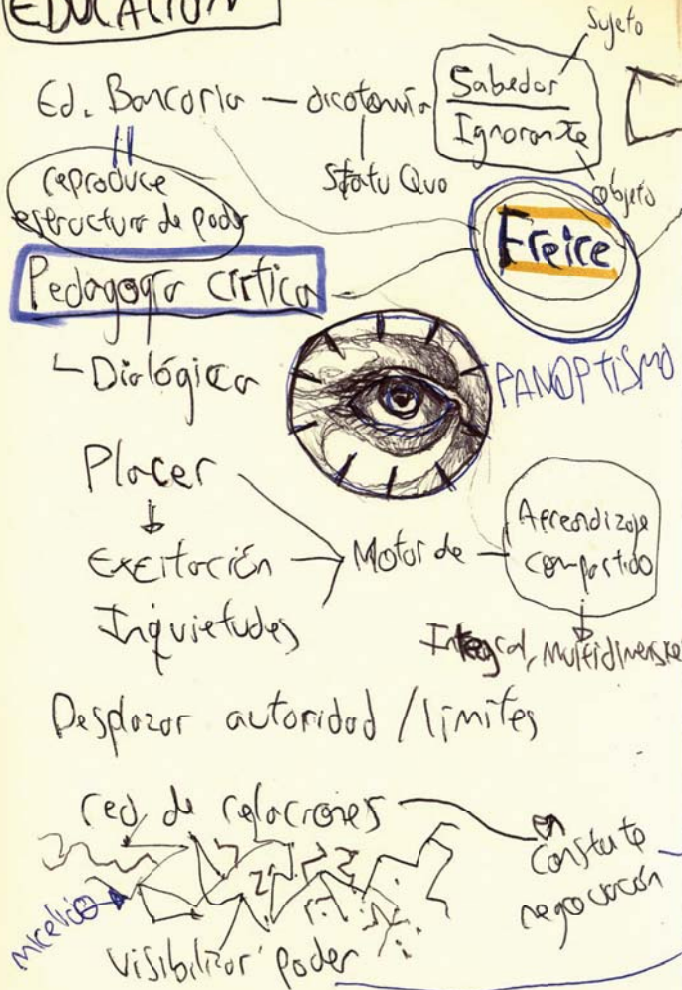 EDUCACIÓN
Sujeto
Ed. Bancaria — dicotomía
Sabedor
Ignorante
Statu Quo
objeto
reproduce
estructura de poder
Freire
Pedagogía crítica
Dialógica
PANOPTISMO
Placer
Excitación
Inquietudes
Motor de
Aprendizaje
compartido
Integral,
Desplazar autoridad / límites
red de relaciones
en
constate
negociación
micelio
visibilizar poder